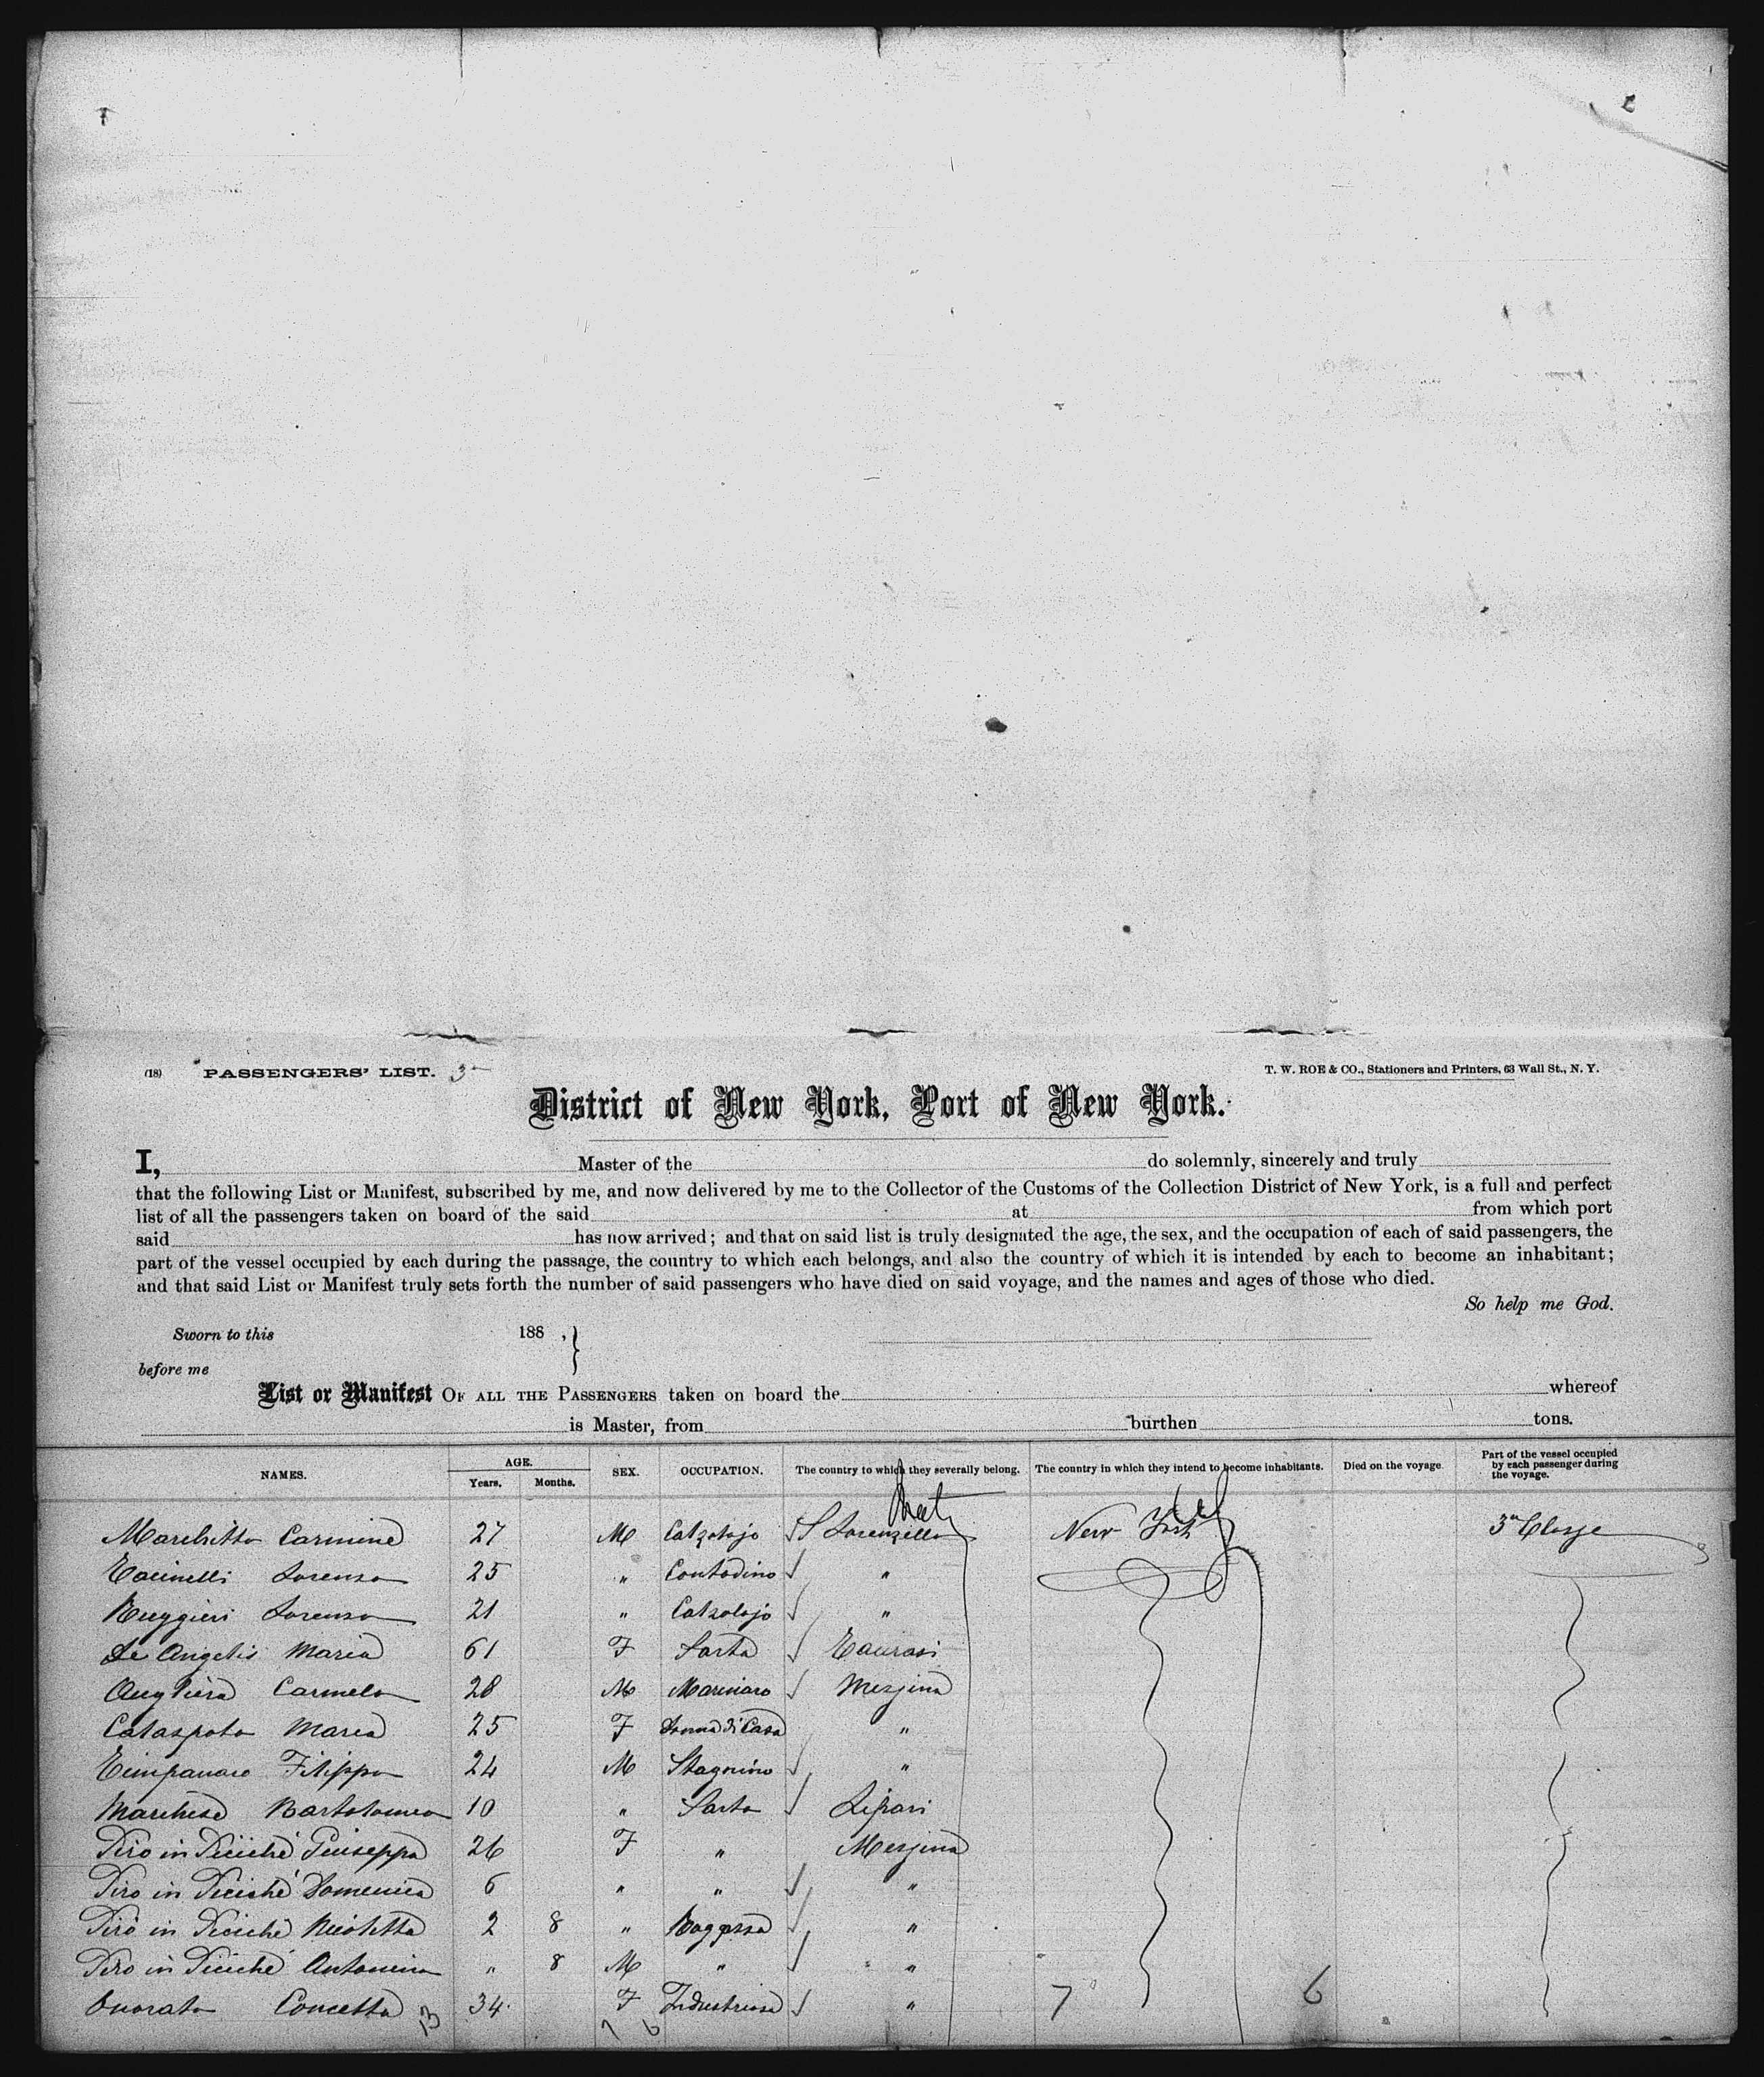 (18) PASSENGERS' LIST. 3
T. W. ROE & CO., Stationers and Printers, 63 Wall St., N. Y.
District of New York, Port of New York.
I, Master of the do solemnly, sincerely and truly
that the following List or Manifest, subscribed by me, and now delivered by me to the Collector of the Customs of the Collection District of New York, is a full and perfect
list of all the passengers taken on board of the said at from which port
said has now arrived; and that on said list is truly designated the age, the sex, and the occupation of each of said passengers, the
part of the vessel occupied by each during the passage, the country to which each belongs, and also the country of which it is intended by each to become an inhabitant;
and that said List or Manifest truly sets forth the number of said passengers who have died on said voyage, and the names and ages of those who died.
So help me God.
Sworn to this 188 ,
before me
List or Manifest OF ALL THE PASSENGERS taken on board the whereof
is Master, from burthen tons.
NAMES. AGE. Years. Months. SEX. OCCUPATION. The country to which they severally belong. The country in which they intend to become inhabitants. Died on the voyage. Part of the vessel occupied by each passenger during the voyage.
Carmine 27 M Calzolajo S Lorenzello New York 3a Classe
Lorenzo 25 " Contadino "
Ruggieri Lorenzo 21 " Calzolajo "
De Angelis Maria 61 F Sarta Taurasi
Carmelo 28 M Marinaro Messina
Maria 25 F Donna di Casa "
Timpanaro Filippo 24 M Stagnino "
Marchese Bartolomeo 10 " Sarto Lipari
Giuseppa 26 F " Messina
Domenica 6 " " "
Nicoletta 2 8 " Ragazza "
Antonino " 8 M " "
Onorato Concetta 34 F Industriosa " 7 6
13 7 6